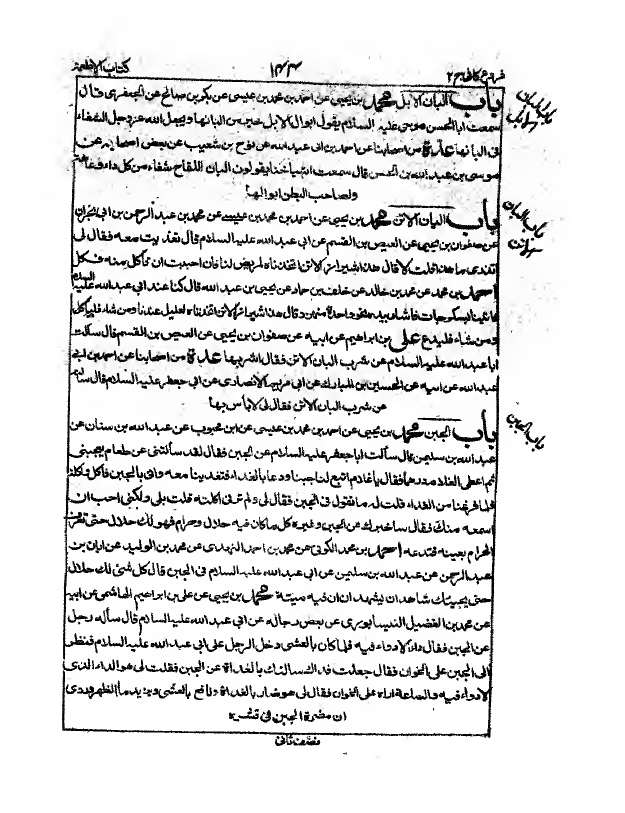 فروع کافی ج ۲
۱۴۴
کتاب الاطعمة
باب البان الابل محمد بن یحیی عن احمد بن محمد بن عیسی عن بکر بن صالح عن الجعفری قال
سمعت ابا الحسن موسی علیه السلام یقول ابوال الابل خیر من البانها ویجعل الله عز وجل الشفاء
فی البانها عدة من اصحابنا عن احمد بن ابی عبد الله عن نوح بن شعیب عن بعض اصحابه عن
موسی بن عبد الله بن الحسن قال سمعت اشیاخنا یقولون البان اللقاح شفاء من کل داء وعاهة
ولصاحب البطن ابوالها
باب البان الاتن محمد بن یحیی عن احمد بن محمد بن عیسی عن محمد بن عبد الرحمن بن ابی نجران
عن صفوان بن یحیی عن العیص بن القسم عن ابی عبد الله علیه السلام قال تغدیت معه فقال لی
اتدری ما هذا قلت لا قال هذا شیراز الاتن اتخذناه لمریض لنا فان احببت ان تاکل منه فکل
احمد بن محمد عن محمد بن خالد عن خلف بن حماد عن یحیی بن عبد الله قال کنا عند ابی عبد الله علیه السلام
فاتینا بسکرجات فاشار بیده نحو واحدة منهن وقال هذا شیراز الاتن اتخذناه لعلیل عندنا ومن شاء فلیاکل
ومن شاء فلیدع علی بن ابراهیم عن ابیه عن صفوان بن یحیی عن العیص بن القسم قال سالت
ابا عبد الله علیه السلام عن شرب البان الاتن فقال اشربها عدة من اصحابنا عن احمد بن ابی
عبد الله عن ابیه عن الحسین بن المبارک عن ابی مریم الانصاری عن ابی جعفر علیه السلام قال سالته
عن شرب البان الاتن فقال لی لا باس بها
باب الجبن محمد بن یحیی عن احمد بن محمد بن عیسی عن ابن محبوب عن عبد الله بن سنان عن
عبد الله بن سلیمن قال سالت ابا جعفر علیه السلام عن الجبن فقال لقد سالتنی عن طعام یعجبنی
ثم اعطی الغلام درهما فقال یا غلام ابتع لنا جبنا ودعا بالغداء فتغدینا معه واتی بالجبن فاکل واکلنا
فلما فرغنا من الغداء قلت له ما تقول فی الجبن فقال لی ولم ترنی اکلته قلت بلی ولکنی احب ان
اسمعه منک فقال ساخبرک عن الجبن وغیره کل ما کان فیه حلال وحرام فهو لک حلال حتی تعرف
الحرام بعینه فتدعه احمد بن محمد الکوفی عن محمد بن احمد النهدی عن محمد بن الولید عن ابان بن
عبد الرحمن عن عبد الله بن سلیمن عن ابی عبد الله علیه السلام فی الجبن قال کل شئ لک حلال
حتی یجیئک شاهدان یشهدان ان فیه میتة محمد بن یحیی عن علی بن ابراهیم الهاشمی عن ابیه
عن محمد بن الفضیل النیسابوری عن بعض رجاله عن ابی عبد الله علیه السلام قال ساله رجل
عن الجبن فقال داء لا دواء فیه فلما کان بالعشی دخل الرجل علی ابی عبد الله علیه السلام فنظر
الی الجبن علی الخوان فقال جعلت فداک سالتک بالغداة عن الجبن فقلت لی هو الداء الذی
لا دواء فیه والساعة اراه علی الخوان فقال لی هو ضار بالغداة ونافع بالعشی ویزید ماء الظهر وروی
ان مضرة الجبن فی قشره
نصف ثانی
باب البان الابل
باب البان الاتن
باب الجبن